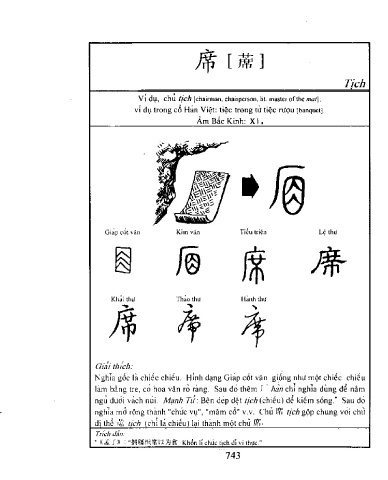 席 [ 蓆 ]
Tịch
Ví dụ, chủ tịch [chairman, chairperson, lit. master of the mat],
ví dụ trong cổ Hán Việt: tiệc trong từ tiệc rượu [banquet].
Âm Bắc Kinh: Xí.
Giáp cốt văn Kim văn Tiểu triện Lệ thư
Khải thư Thảo thư Hành thư
席 席 席
Giải thích:
Nghĩa gốc là chiếc chiếu. Hình dạng Giáp cốt văn giống như một chiếc chiếu
làm bằng tre, có hoa văn rõ ràng. Sau đó thêm hán chỉ nghĩa dùng để nằm
ngủ dưới vách núi. Mạnh Tử: Bèn dép dệt tịch (chiếu) để kiếm sống. Sau đó
nghĩa mở rộng thành "chức vụ", "mâm cỗ" v.v. Chữ 席 tịch gộp chung với chữ
dị thể tịch (chỉ là chiếu) lại thành một chữ 席.
Trích dẫn:
捆屨織席以为食 Khổn lí chức tịch dĩ vi thực."
743